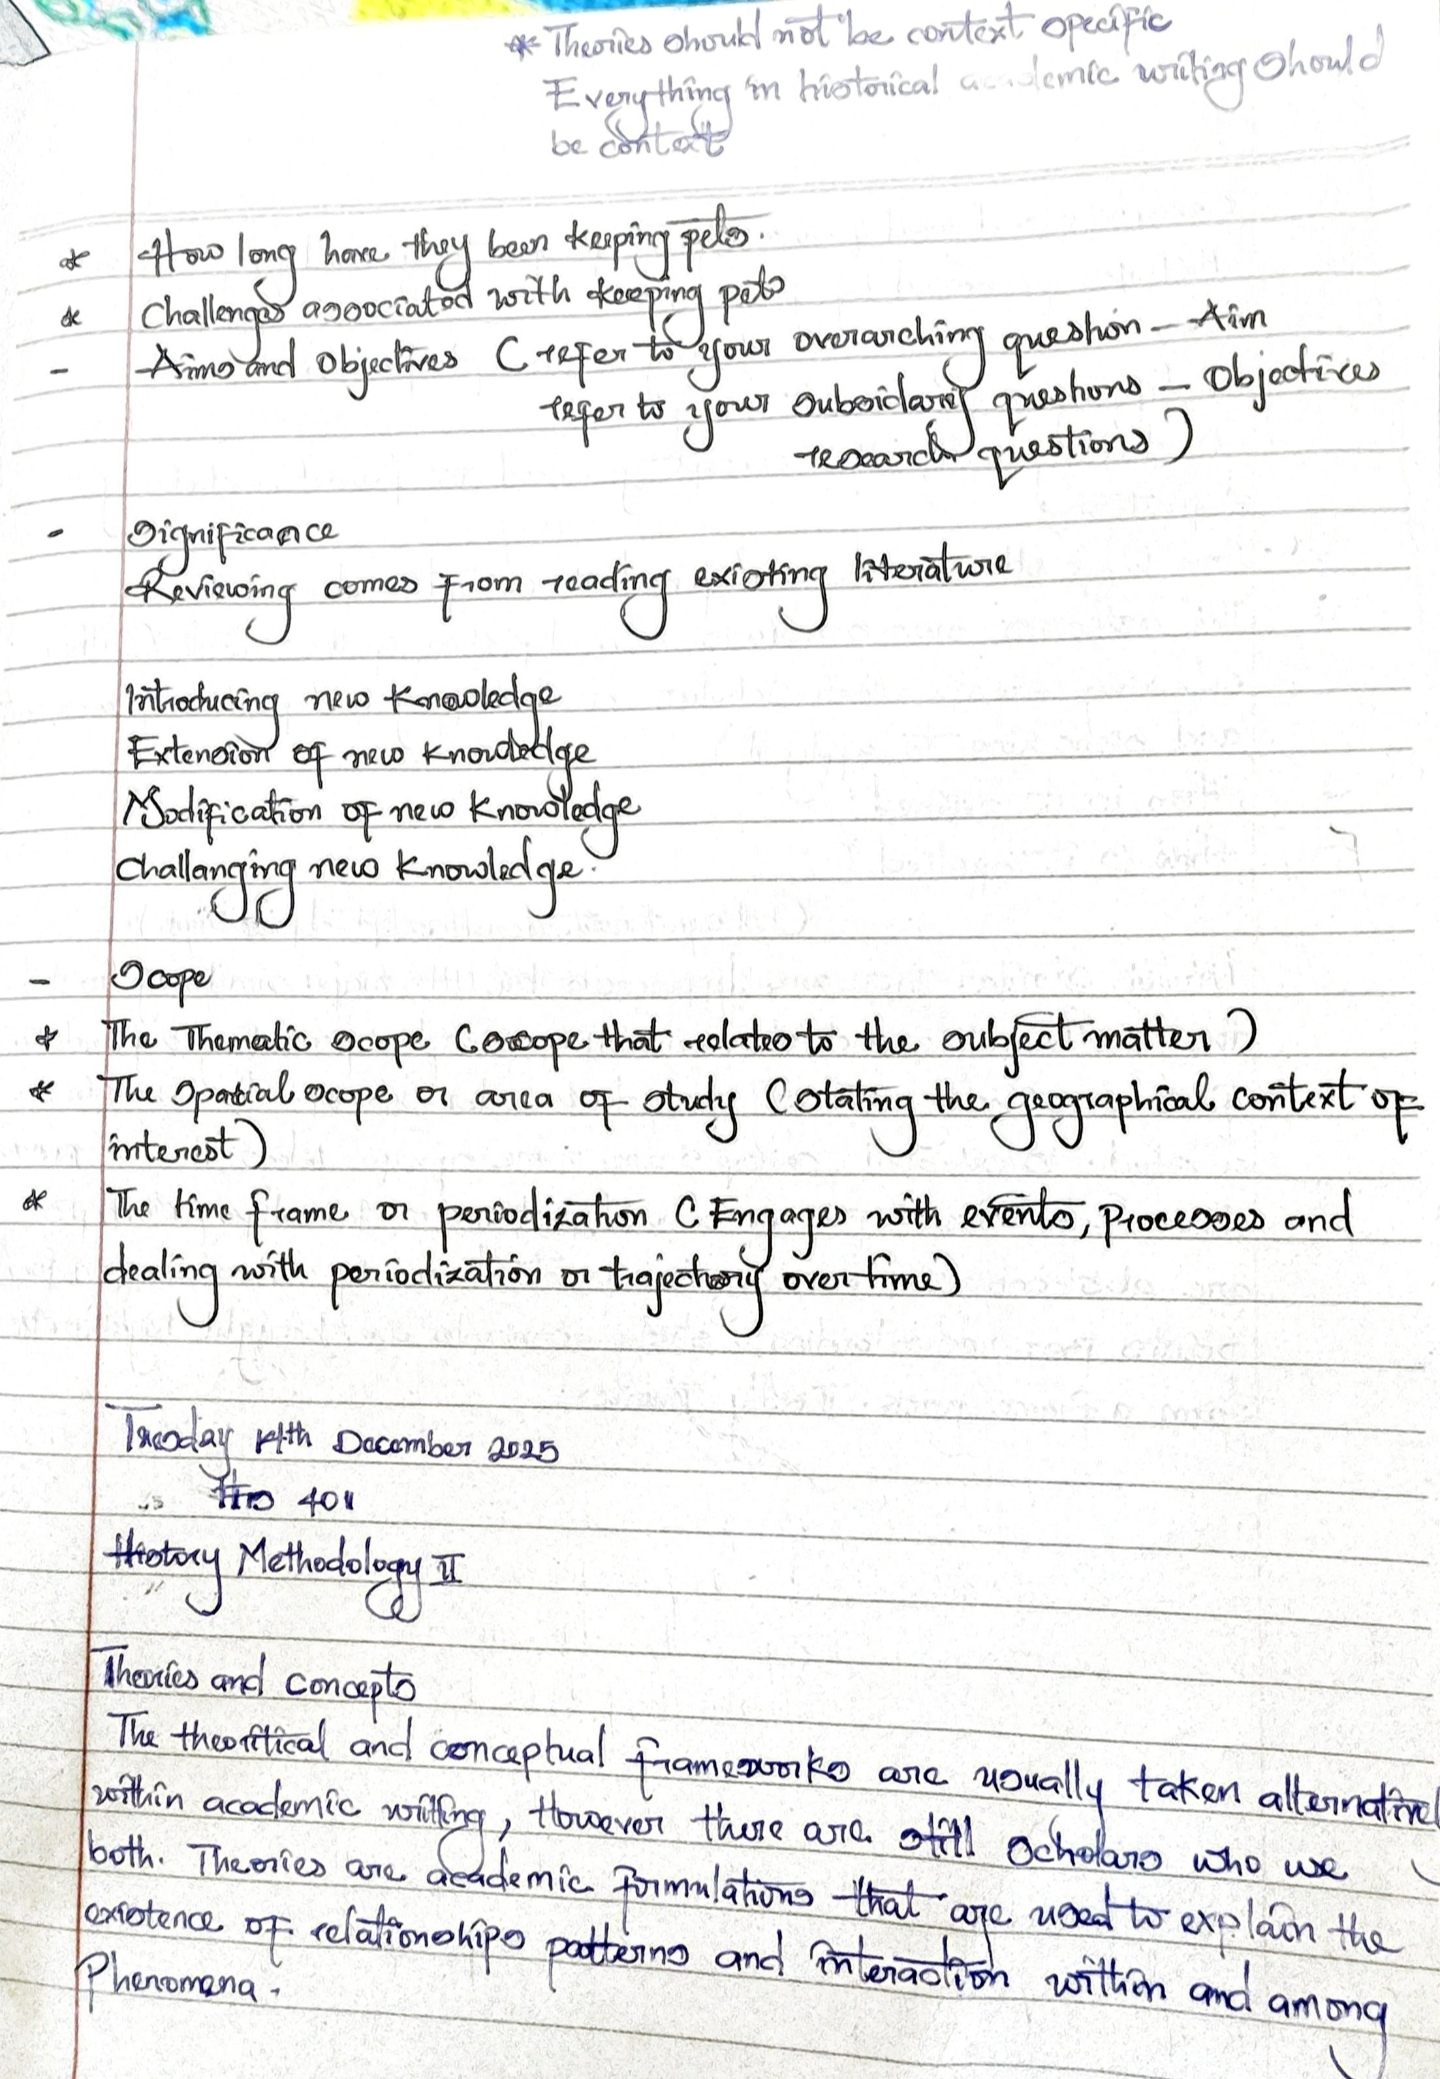 * Theories should not be context specific
Everything in historical academic writing should
be context
* How long have they been keeping pets.
* Challenges associated with keeping pets
- Aims and Objectives (refer to your overarching question - Aim
refer to your subsidiary questions - Objectives
research questions)
- Significance
Reviewing comes from reading existing literature
Introducing new knowledge
Extension of new knowledge
Modification of new knowledge
Challanging new knowledge.
- Scope
* The Thematic scope (scope that relates to the subject matter)
* The spatial scope or area of study (stating the geographical context of
interest)
* The time frame or periodization (Engages with events, processes and
dealing with periodization or trajectory over time)
Tuesday December 2025
His 401
History Methodology II
Theories and concepts
The theoritical and conceptual frameworks are usually taken alternative
within academic writing, However there are still scholars who use
both. Theories are academic formulations that are used to explain the
existence of relationships patterns and interaction within and among
Phenomena.